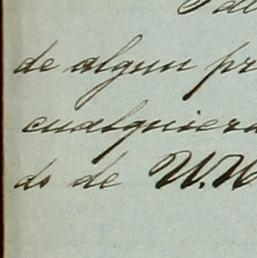 de algun pr
cualquiera
do de W.W